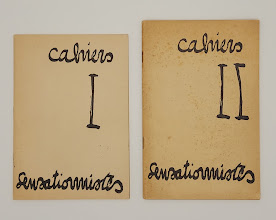 cahiers
I
sensationnistes
cahiers
II
sensationnistes